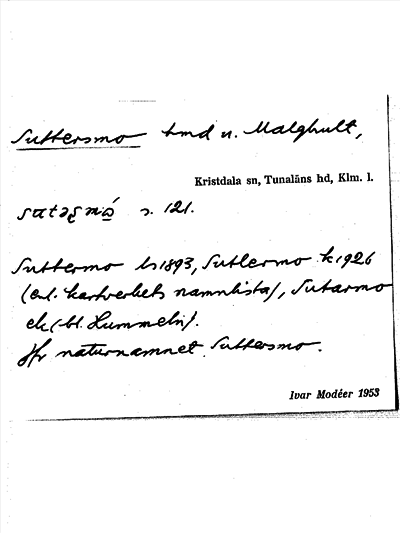 Suttersmo hmd u. Malghult,
Kristdala sn, Tunaläns hd, Klm. l.
s. 121.
Suttermo ls 1893, Sutlermo k 1926
(enl. kartverkets namnlista), Sutarmo
ek (bl. Hummeln).
Jfr naturnamnet Suttersmo.
Ivar Modéer 1953